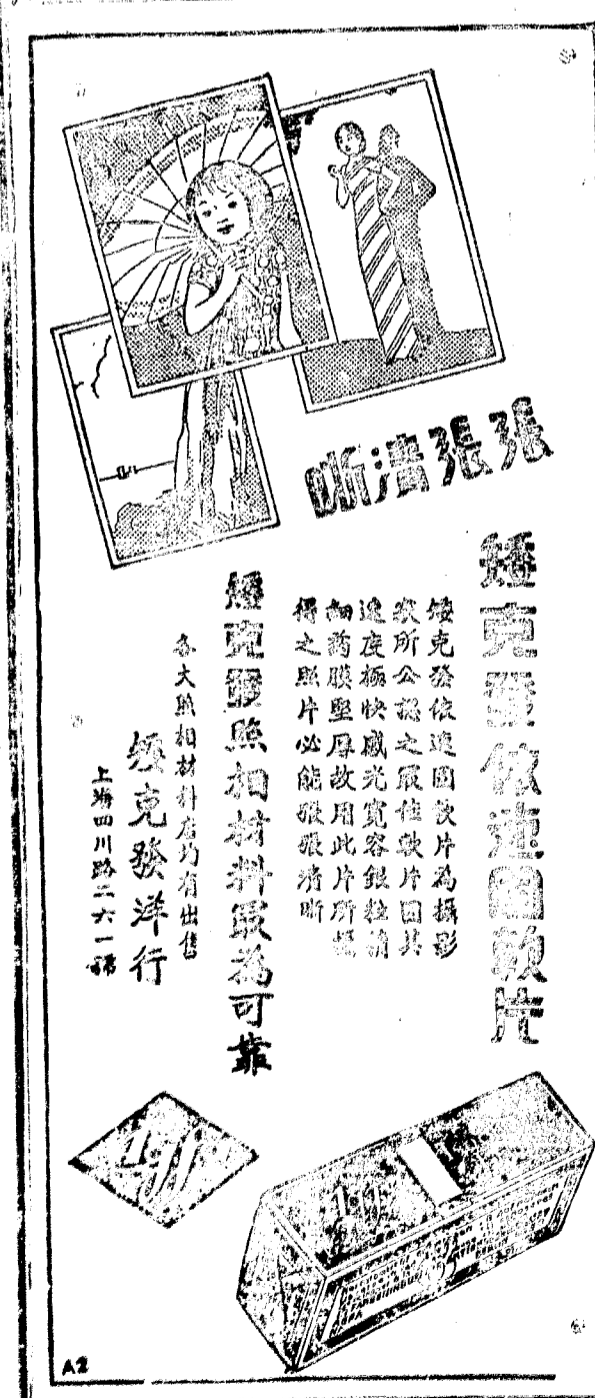 張張清晰
矮克發依速圖軟片
矮克發依速圖軟片為攝影
家所公認之最佳軟片因其
速度極快感光寬容銀粒精
細藥膜堅厚故用此片所攝
得之照片必能張張清晰
矮克發照相材料最為可靠
各大照相材料店均有出售
矮克發洋行
上海四川路二六一號
A2